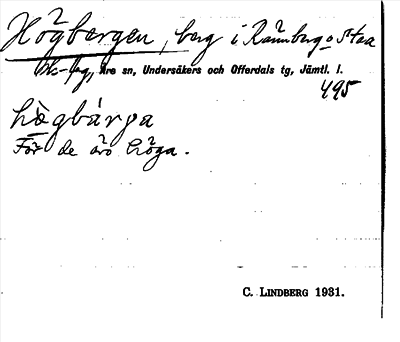 Högbergen, berg i Rännberg o Staa
bk-bg, Åre sn, Undersåkers och Offerdals tg, Jämtl. l.
495
högbärga
För de äro höga.
C. LINDBERG 1931.